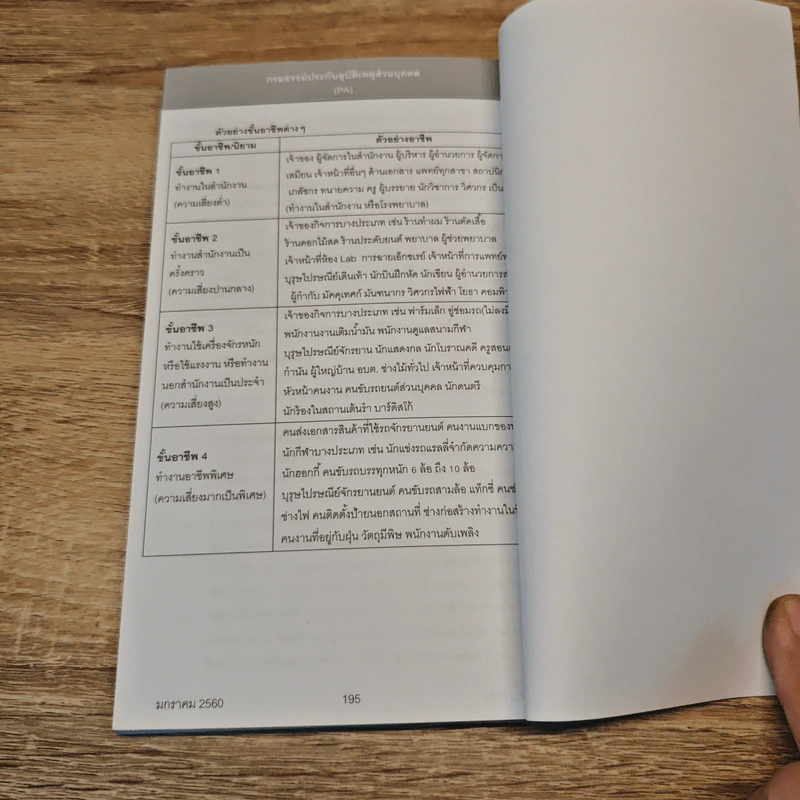 กรมธรรม์ประกันอุบัติเหตุส่วนบุคคล
(PA)
ตัวอย่างชั้นอาชีพต่างๆ
ชั้นอาชีพ/นิยาม
ตัวอย่างอาชีพ
ชั้นอาชีพ 1
ทำงานในสำนักงาน
(ความเสี่ยงต่ำ)
เจ้าของ ผู้จัดการในสำนักงาน ผู้บริหาร ผู้อำนวยการ ผู้จัดกา
เสมียน เจ้าหน้าที่อื่นๆ ด้านเอกสาร แพทย์ทุกสาขา
เภสัชกร ทนายความ ครู ผู้บรรยาย นักวิชาการ วิศวกร
(ทำงานในสำนักงาน หรือโรงพยาบาล)
ชั้นอาชีพ 2
ทำงานสำนักงานเป็น
ครั้งคราว
(ความเสี่ยงปานกลาง)
เจ้าของกิจการบางประเภท เช่น ร้านทำผม ร้านตัดเสื้อ
ร้านดอกไม้สด ร้านประดับยนต์ พยาบาล ผู้ช่วยพยาบาล
เจ้าหน้าที่ห้อง Lab การฉายเอ็กซเรย์ เจ้าหน้าที่การแพทย์
บุรุษไปรษณีย์เดินเท้า นักบินฝึกหัด นักเขียน ผู้อำนวยการ
ผู้กำกับ มัคคุเทศก์ มันฑนากร วิศวกรไฟฟ้า โยธา
ชั้นอาชีพ 3
ทำงานใช้เครื่องจักรหนัก
หรือใช้แรงงาน หรือทำงาน
นอกสำนักงานเป็นประจำ
(ความเสี่ยงสูง)
เจ้าของกิจการบางประเภท เช่น ฟาร์มเล็ก อู่ซ่อมรถ
พนักงานงานเติมน้ำมัน พนักงานดูแลสนามกีฬา
บุรุษไปรษณีย์จักรยาน นักแสดงกล นักโบราณคดี
กำนัน ผู้ใหญ่บ้าน อบต. ช่างไม้ทั่วไป เจ้าหน้าที่ควบคุม
หัวหน้าคนงาน คนขับรถยนต์ส่วนบุคคล นักดนตรี
นักร้องในสถานเต้นรำ บาร์ดิสโก้
ชั้นอาชีพ 4
ทำงานอาชีพพิเศษ
(ความเสี่ยงมากเป็นพิเศษ)
คนส่งเอกสารสินค้าที่ใช้รถจักรยานยนต์ คนงานแบกของ
นักกีฬาบางประเภท เช่น นักแข่งรถแรลลี่จำกัดความ
นักฮอกกี้ คนขับรถบรรทุกหนัก 6 ล้อ ถึง 10 ล้อ
บุรุษไปรษณีย์จักรยานยนต์ คนขับรถสามล้อ แท็กซี่
ช่างไฟ คนติดตั้งป้ายนอกสถานที่ ช่างก่อสร้างทำงานใน
คนงานที่อยู่กับฝุ่น วัตถุมีพิษ พนักงานดับเพลิง
มกราคม 2560
195